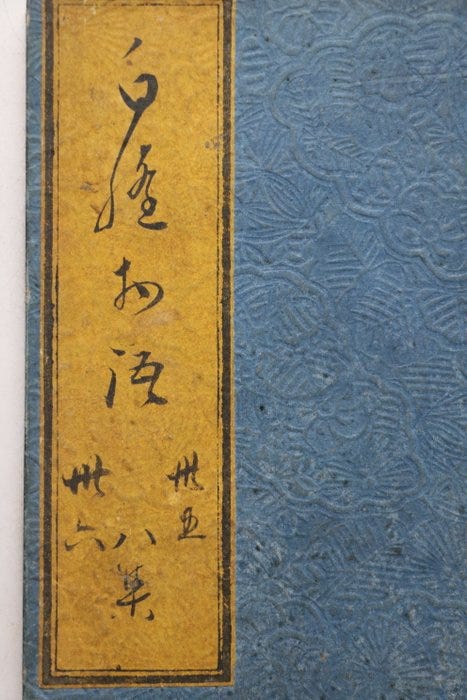 白縫物語
卅五
卅六
八集